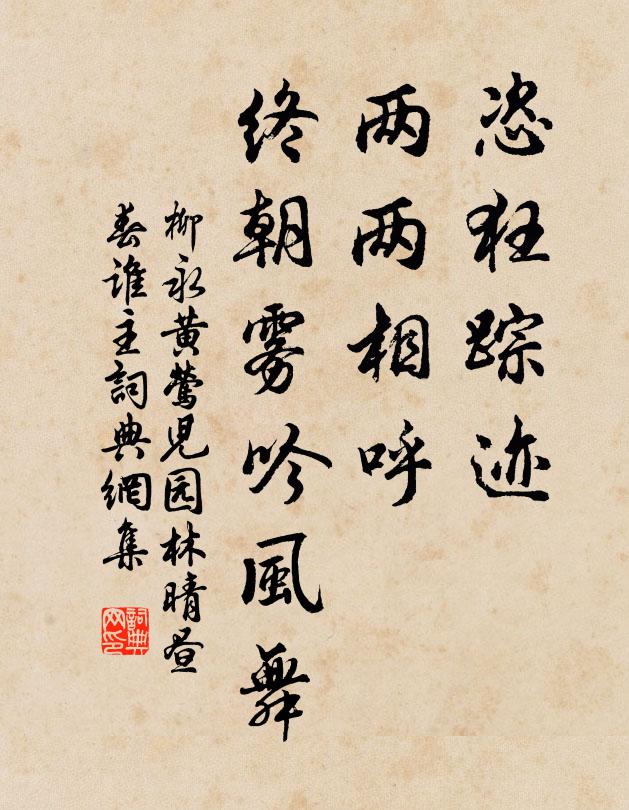 恣狂踪迹
两两相呼
终朝雾吟風舞
柳永黄莺児园林晴昼
春谁主詞典網集
詞典网印